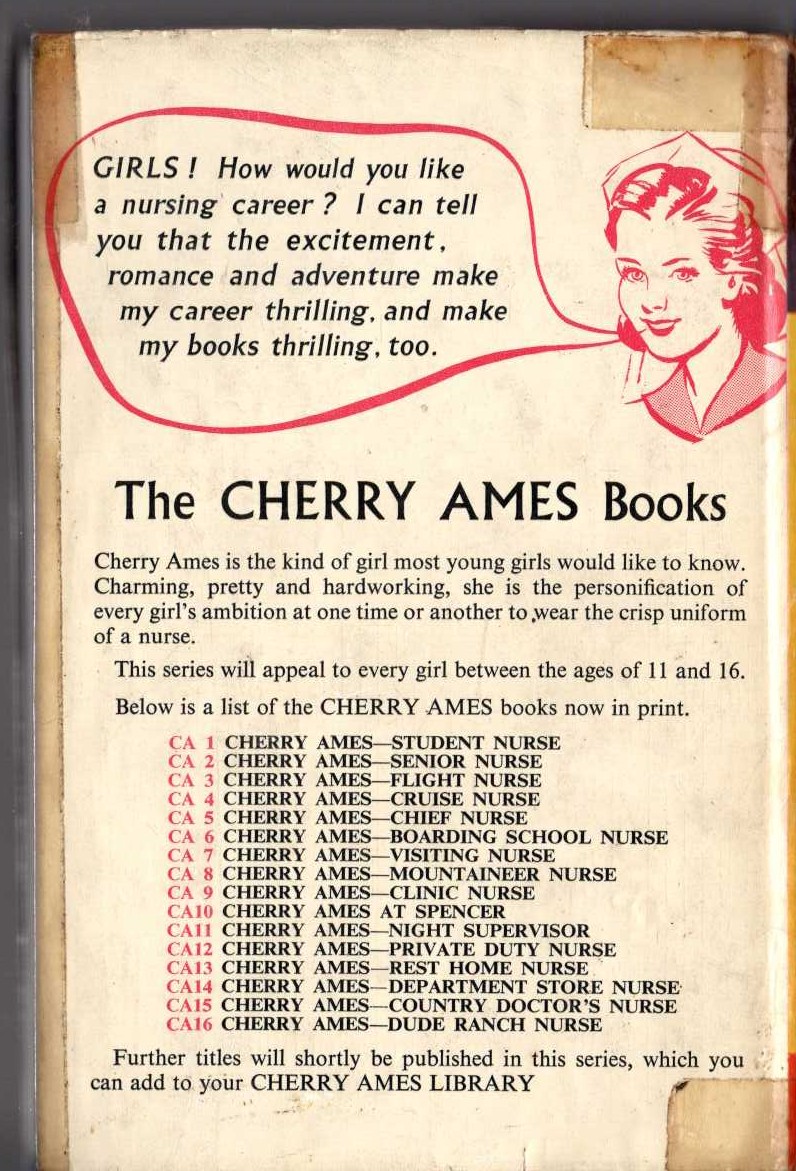 GIRLS ! How would you like
a nursing career ? I can tell
you that the excitement,
romance and adventure make
my career thrilling, and make
my books thrilling, too.
The CHERRY AMES Books
Cherry Ames is the kind of girl most young girls would like to know.
Charming, pretty and hardworking, she is the personification of
every girl's ambition at one time or another to wear the crisp uniform
of a nurse.
This series will appeal to every girl between the ages of 11 and 16.
Below is a list of the CHERRY AMES books now in print.
CA 1 CHERRY AMES—STUDENT NURSE
CA 2 CHERRY AMES—SENIOR NURSE
CA 3 CHERRY AMES—FLIGHT NURSE
CA 4 CHERRY AMES—CRUISE NURSE
CA 5 CHERRY AMES—CHIEF NURSE
CA 6 CHERRY AMES—BOARDING SCHOOL NURSE
CA 7 CHERRY AMES—VISITING NURSE
CA 8 CHERRY AMES—MOUNTAINEER NURSE
CA 9 CHERRY AMES—CLINIC NURSE
CA10 CHERRY AMES AT SPENCER
CA11 CHERRY AMES—NIGHT SUPERVISOR
CA12 CHERRY AMES—PRIVATE DUTY NURSE
CA13 CHERRY AMES—REST HOME NURSE
CA14 CHERRY AMES—DEPARTMENT STORE NURSE
CA15 CHERRY AMES—COUNTRY DOCTOR'S NURSE
CA16 CHERRY AMES—DUDE RANCH NURSE
Further titles will shortly be published in this series, which you
can add to your CHERRY AMES LIBRARY